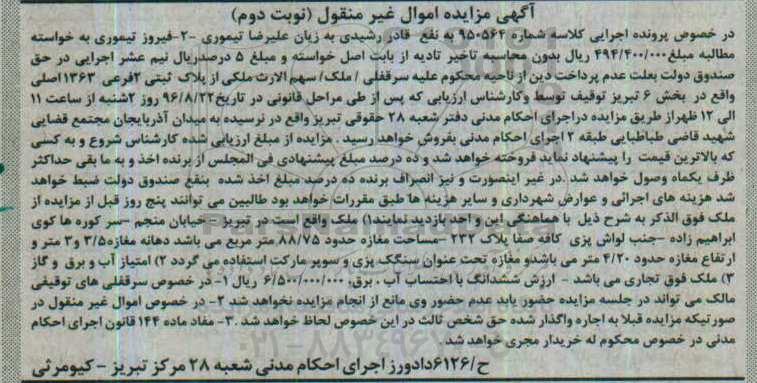 آگهی مزایده اموال غیر منقول (نوبت دوم)
در خصوص پرونده اجرایی کلاسه شماره ۹۵۰۵۶۴ به نفع قادر رشیدی به زیان علیرضا تیموری -۲-فیروز تیموری به خواسته
مطالبه مبلغ ۴۹۴/۴۰۰/۰۰۰ ریال بدون محاسبه تاخیر تادیه از بابت اصل خواسته و مبلغ ۵ درصدریال نیم عشر اجرایی در حق
صندوق دولت بعلت عدم پرداخت دین از ناحیه محکوم علیه سرقفلی / ملک/ سهم الارث ملکی از پلاک ثبتی ۲فرعی ۱۳۶۳اصلی
واقع در بخش ۶ تبریز توقیف توسط وکارشناس ارزیابی که پس از طی مراحل قانونی در تاریخ۹۶/۸/۲۲ روز ۲شنبه از ساعت ۱۱
الی ۱۲ ظهراز طریق مزایده دراجرای احکام مدنی دفتر شعبه ۲۸ حقوقی تبریز واقع در نرسیده به میدان آذربایجان مجتمع قضایی
شهید قاضی طباطبایی طبقه ۲ اجرای احکام مدنی بفروش خواهد رسید. مزایده از مبلغ ارزیابی شده کارشناس شروع و به کسی
که بالاترین قیمت را پیشنهاد نماید فروخته خواهد شد و ده درصد مبلغ پیشنهادی فی المجلس از برنده اخذ و به ما بقی حداکثر
ظرف یکماه وصول خواهد شد .در غیر اینصورت و نیز انصراف برنده ده درصد مبلغ اخذ شده بنفع صندوق دولت ضبط خواهد
شد هزینه های اجرائی و عوارض شهرداری و سایر هزینه ها طبق مقررات خواهد بود طالبین می توانند پنج روز قبل از مزایده از
ملک فوق الذکر به شرح ذیل با هماهنگی این و احد بازدید نمایند۱) ملک واقع است در تبریز – خیابان منجم –سر کوره ها کوی
ابراهیم زاده –جنب لواش پزی کافه صفا پلاک ۲۳۲ –مساحت مغازه حدود ۸۸/۷۵ متر مربع می باشد دهانه مغازه۳/۵ و۳ متر و
ارتفاع مغازه حدود ۴/۲۰ متر می باشدو مغازه تحت عنوان سنگک پزی و سوپر مارکت استفاده می گردد ۲) امتیاز آب و برق و گاز
۳) ملک فوق تجاری می باشد - ارزش ششدانگ با احتساب آب . برق. ۶/۵۰۰/۰۰۰/۰۰۰ ریال ۱- در خصوص سرقفلی های توقیفی
مالک می تواند در جلسه مزایده حضور یابد عدم حضور وی مانع از انجام مزایده نخواهد شد ۲- در خصوص اموال غیر منقول در
صورتیکه مزایده قبلا به اجاره واگذار شده حق شخص ثالث در این خصوص لحاظ خواهد شد .۳- مفاد ماده ۱۴۴ قانون اجرای احکام
مدنی در خصوص محکوم له خریدار مجری خواهد شد
ح/۶۱۲۶دادورز اجرای احکام مدنی شعبه ۲۸ مرکز تبریز - کیومرثی
ParsNamadData
۰۲۱-۸۸۳۴۹۶۷۰